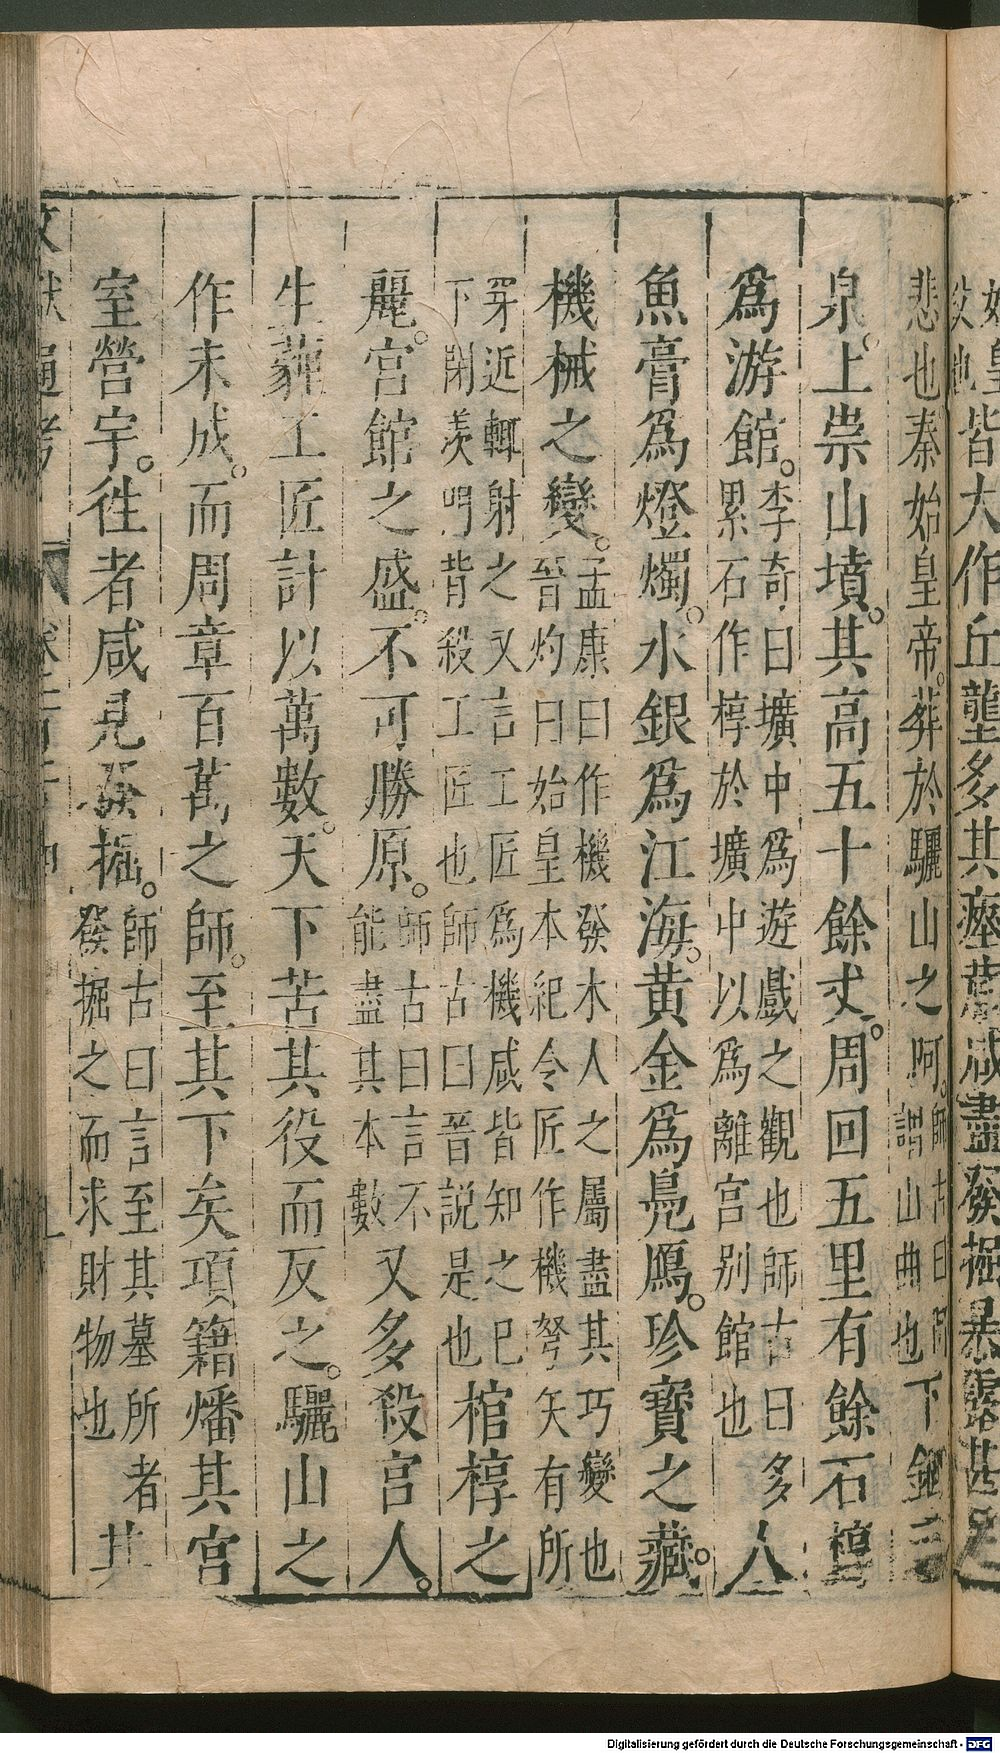 皆大作丘壟多其瘞藏咸盡發掘暴露甚足
悲也秦始皇帝葬於驪山之阿師古曰阿謂山曲也下錮三
泉上崇山墳其高五十餘丈周回五里有餘石槨
爲游館李奇曰壙中爲遊戲之觀也師古曰多累石作椁於壙中以爲離宮别館也人
魚膏爲燈燭水銀爲江海黄金爲鳧鴈珍寶之藏
機械之變孟康曰作機發木人之屬盡其巧變也晉灼曰始皇本紀令匠作機弩矢有所
穿近輙射之又言工匠爲機咸皆知之已下閉羡門背殺工匠也師古曰晉説是也棺椁之
麗宮館之盛不可勝原師古曰言不能盡其本數又多殺宫人
生薶工匠計以萬數天下苦其役而反之驪山之
作未成而周章百萬之師至其下矣項籍燔其宮
室營宇徃者咸見發掘師古曰言至其墓所者發掘之而求財物也其
文獻通考
Digitalisierung gefördert durch die Deutsche Forschungsgemeinschaft - DFG